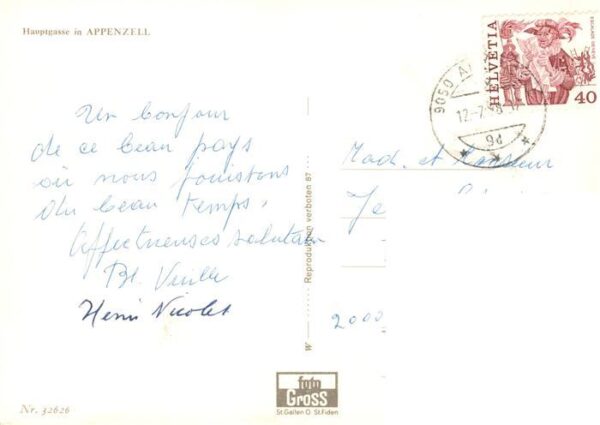 Hauptgasse in APPENZELL
HELVETIA
40
9050 A
12-7
9d
Un bonjour
de ce beau pays
où nous jouissons
du beau temps.
Affectueuses salutations
Bl.
Henri Nicolet
Mad. et Monsieur
Je
2000
W
Reproduktion verboten 87
foto
Gross
St.Gallen O. St.Fiden
Nr. 32626